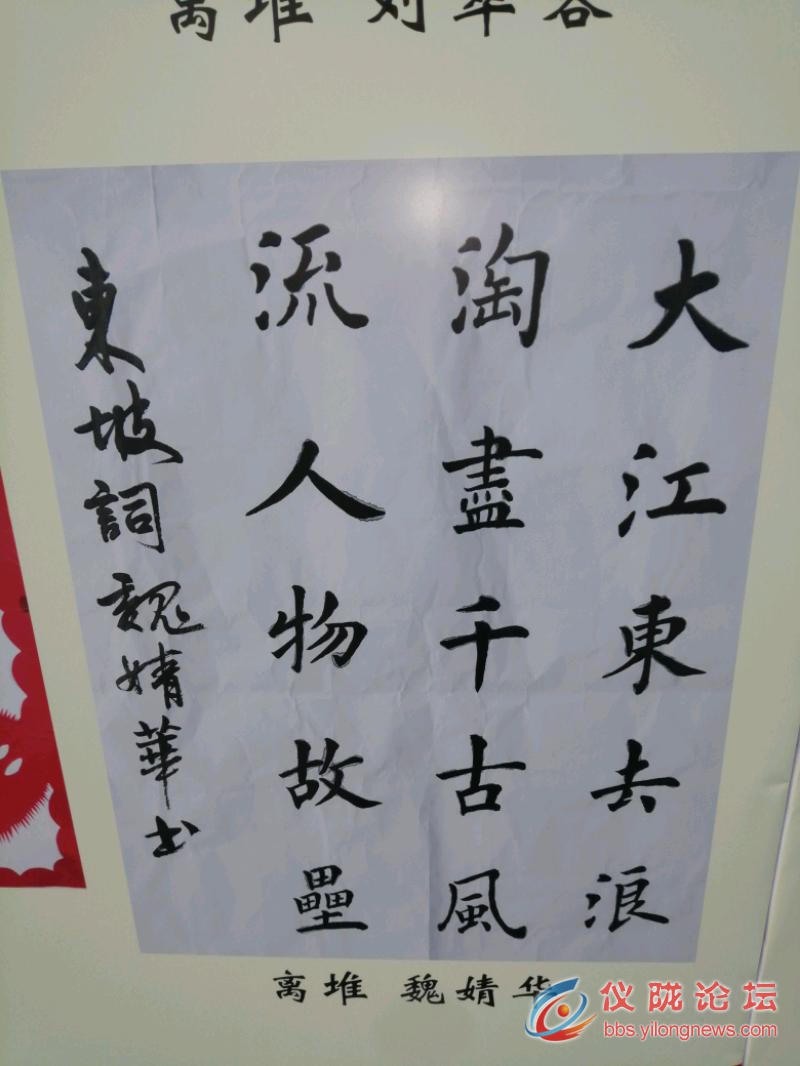 离堆 刘翠容
大江東去浪
淘盡千古風
流人物故壘
東坡詞魏婧華书
离堆 魏婧华
仪陇论坛
bbs.yilongnews.com